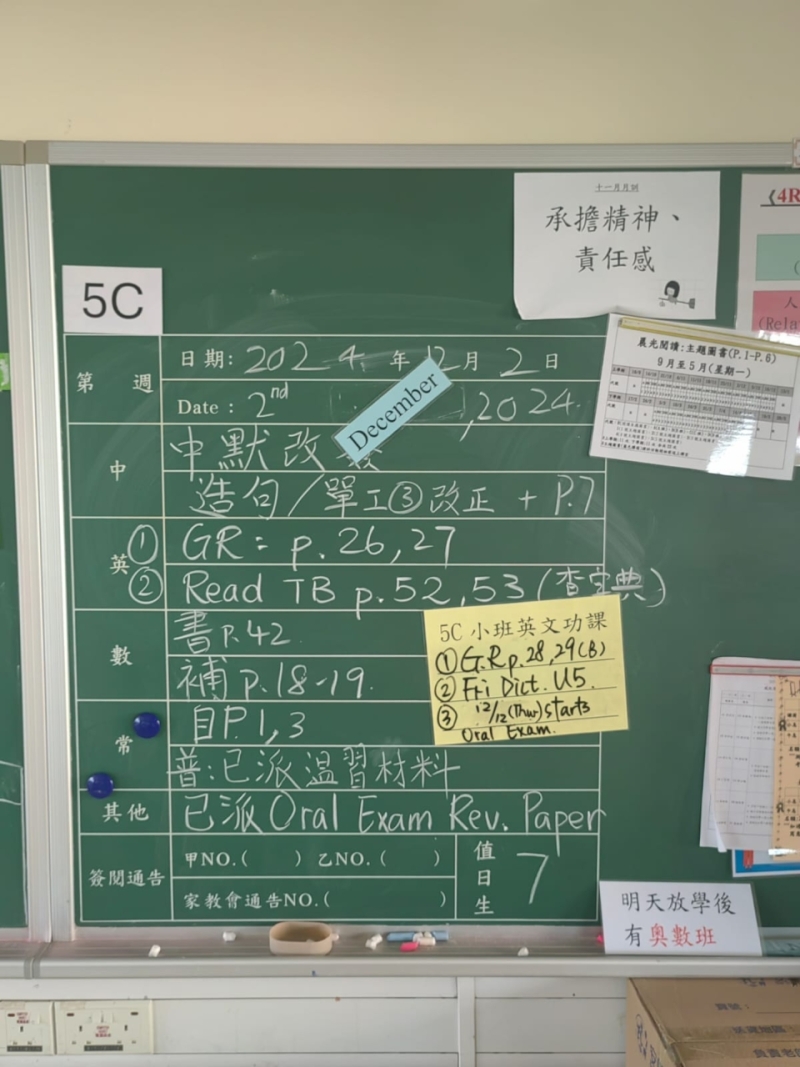 十一月月訓
承擔精神、
責任感
《4R
人
(Rela
5C
晨光閱讀:主題圖書(P.1-P.6)
9月至5月(星期一)
第 週
日期: 2024 年 12 月 2 日
Date : 2nd December ,2024
中
中默改
造句/單工③改正 + P.7
英
① GR: p.26,27
② Read TB p.52,53 (查字典)
5C 小班英文功課
① G.R p.28,29(B)
② Fri Dict. U5.
③ 12/12 (Thur) starts
Oral Exam.
數
書P.42
補 p.18-19.
常
自P.1,3
普:已派溫習材料
其他
已派Oral Exam Rev. Paper
簽閱通告
甲NO.( ) 乙NO.( )
家教會通告NO.( )
值日生
7
明天放學後
有奧數班